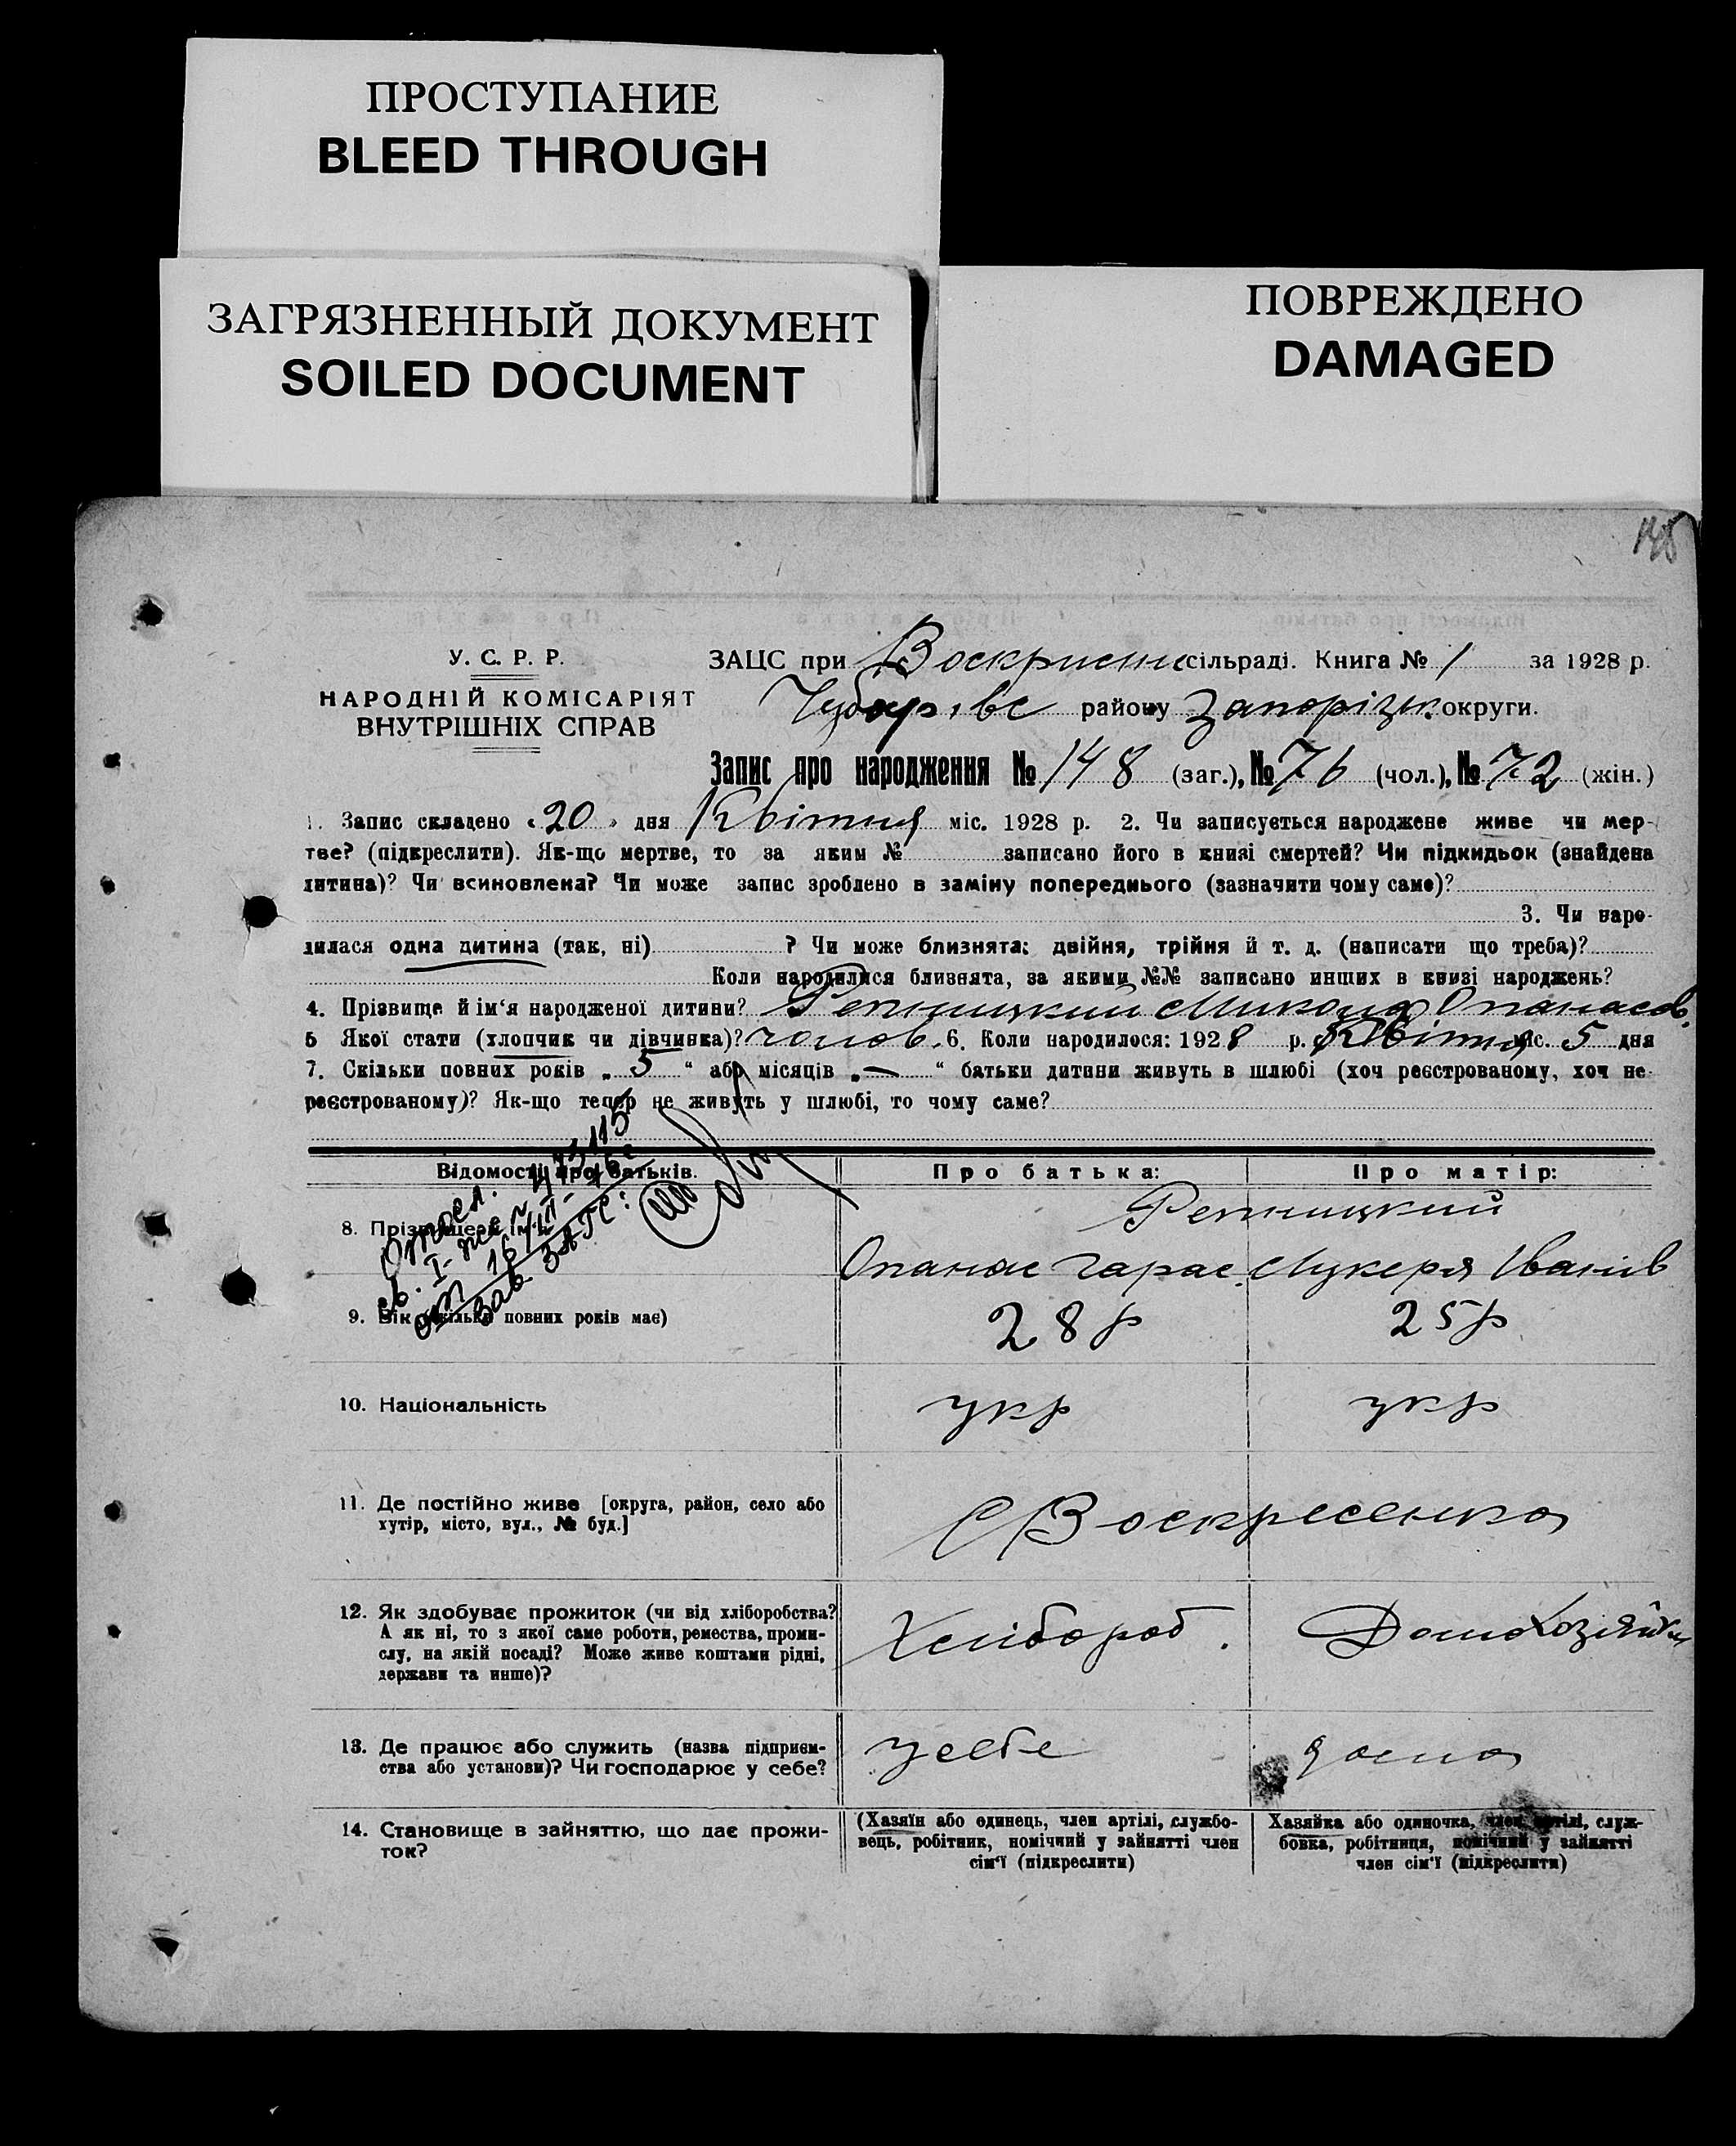 ПРОСТУПАНИЕ
BLEED THROUGH
ЗАГРЯЗНЕННЫЙ ДОКУМЕНТ
SOILED DOCUMENT
ПОВРЕЖДЕНО
DAMAGED
У. С. Р. Р.
НАРОДНІЙ КОМІСАРІЯТ
ВНУТРІШНІХ СПРАВ
ЗАЦС при Воскрисенс сільраді. Книга № 1 за 1928 р.
Чубарівс району Запорізьк округи.
Запис про народження № 148 (заг.), № 76 (чол.), № 72 (жін.)
1. Запис складено « 20 » дня Квітня міс. 1928 р. 2. Чи записується народжене живе чи мер-
тве? (підкреслити). Як-що мертве, то за яким № записано його в книзі смертей? Чи підкидьок (знайдена
дитина)? Чи всиновлена? Чи може запис зроблено в заміну попереднього (зазначити чому саме)?
3. Чи наро-
дилася одна дитина (так, ні) ? Чи може близнята: двійня, трійня й т. д. (написати що треба)?
Коли народилися близнята, за якими №№ записано инших в книзі народжень?
4. Прізвище й ім‘я народженої дитини? Репницкий Микола Опанасов.
5 Якої стати (хлопчик чи дівчинка)? чолов. 6. Коли народилося: 1928 р. Квітня міс. 5 дня
7. Скільки повних років „ 5 “ або місяців „ — “ батьки дитини живуть в шлюбі (хоч реєстрованому, хоч не-
реєстрованому)? Як-що тепер не живуть у шлюбі, то чому саме?
Відомості про батьків.
Про батька:
Про матір:
8. Прізвище й ім‘я
Репницкий
Опанас Тарас. Лукеря Іванів
9. Вік (скільки повних років має)
28 р
25 р
10. Національність
укр
укр
11. Де постійно живе [округа, район, село або
хутір, місто, вул., № буд.]
С Воскресенка
12. Як здобуває прожиток (чи від хліборобства?
А як ні, то з якої саме роботи, ремества, проми-
слу, на якій посаді? Може живе коштами рідні,
держави та инше)?
Хлібороб.
Домохозяйка
13. Де працює або служить (назва підприєм-
ства або установи)? Чи господарює у себе?
у себе
дома
14. Становище в зайняттю, що дає прожи-
ток?
(Хазяїн або одинець, член артілі, службо-
вець, робітник, помічний у зайнятті член
сім‘ї (підкреслити)
Хазяйка або одиночка, член артілі, служ-
бовка, робітниця, помічний у зайнятті
член сім‘ї (підкреслити)